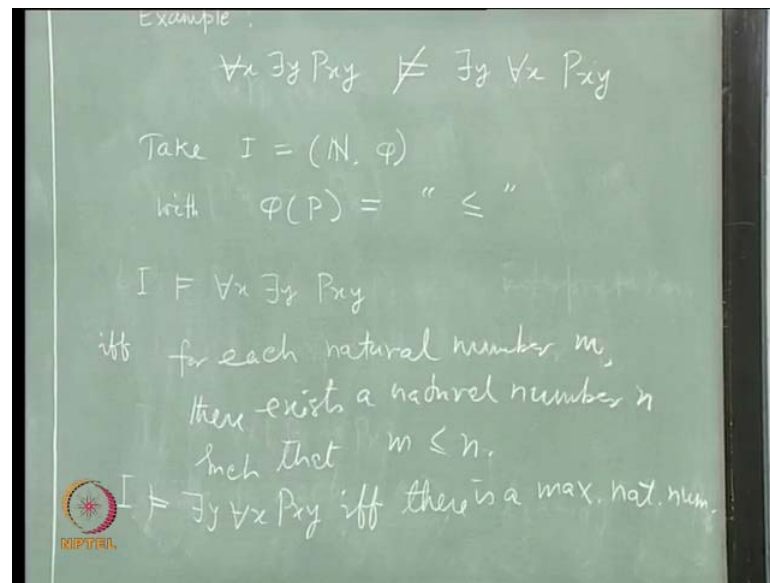 Example :
∀x ∃y Pxy ⊭ ∃y ∀x Pxy
Take I = (N, φ)
with φ(P) = " ≤ "
I ⊨ ∀x ∃y Pxy
iff for each natural number m,
there exists a natural number n
such that m ≤ n.
I ⊨ ∃y ∀x Pxy iff there is a max. nat. num.
NPTEL